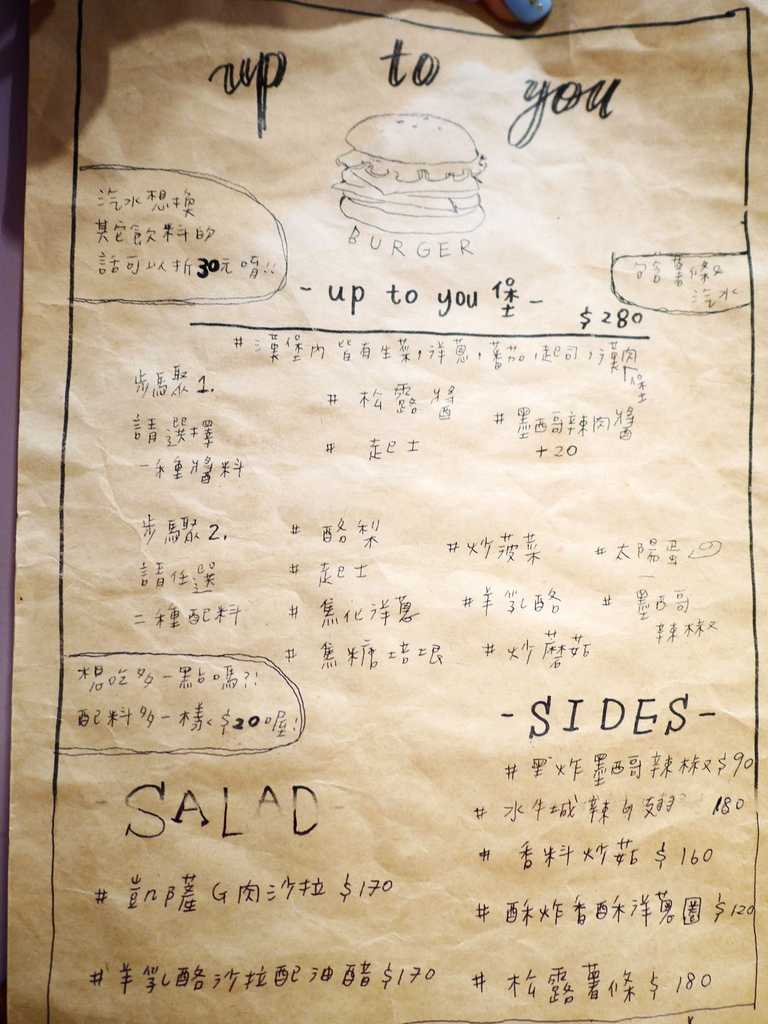 up to you
BURGER
汽水想換
其它飲料的
話可以折30元唷!!
包含薯條
汽水
- up to you 堡 -
$280
# 漢堡內皆有生菜,洋蔥,蕃茄,起司,漢堡肉
步驟1.
請選擇
一種醬料
# 松露醬
# 起士
# 墨西哥辣肉醬
+20
步驟2.
請任選
二種配料
# 酪梨
# 起士
# 焦化洋蔥
# 焦糖培根
# 炒菠菜
# 羊乳酪
# 炒蘑菇
# 太陽蛋
# 墨西哥
辣椒
想吃多一點嗎?!
配料多一樣 $20喔!
- SIDES -
# 炸墨西哥辣椒 $90
# 水牛城辣雞翅 180
# 香料炒菇 $160
# 酥炸香酥洋蔥圈 $120
# 松露薯條 $180
- SALAD -
# 凱薩雞肉沙拉 $170
# 羊乳酪沙拉配油醋 $170